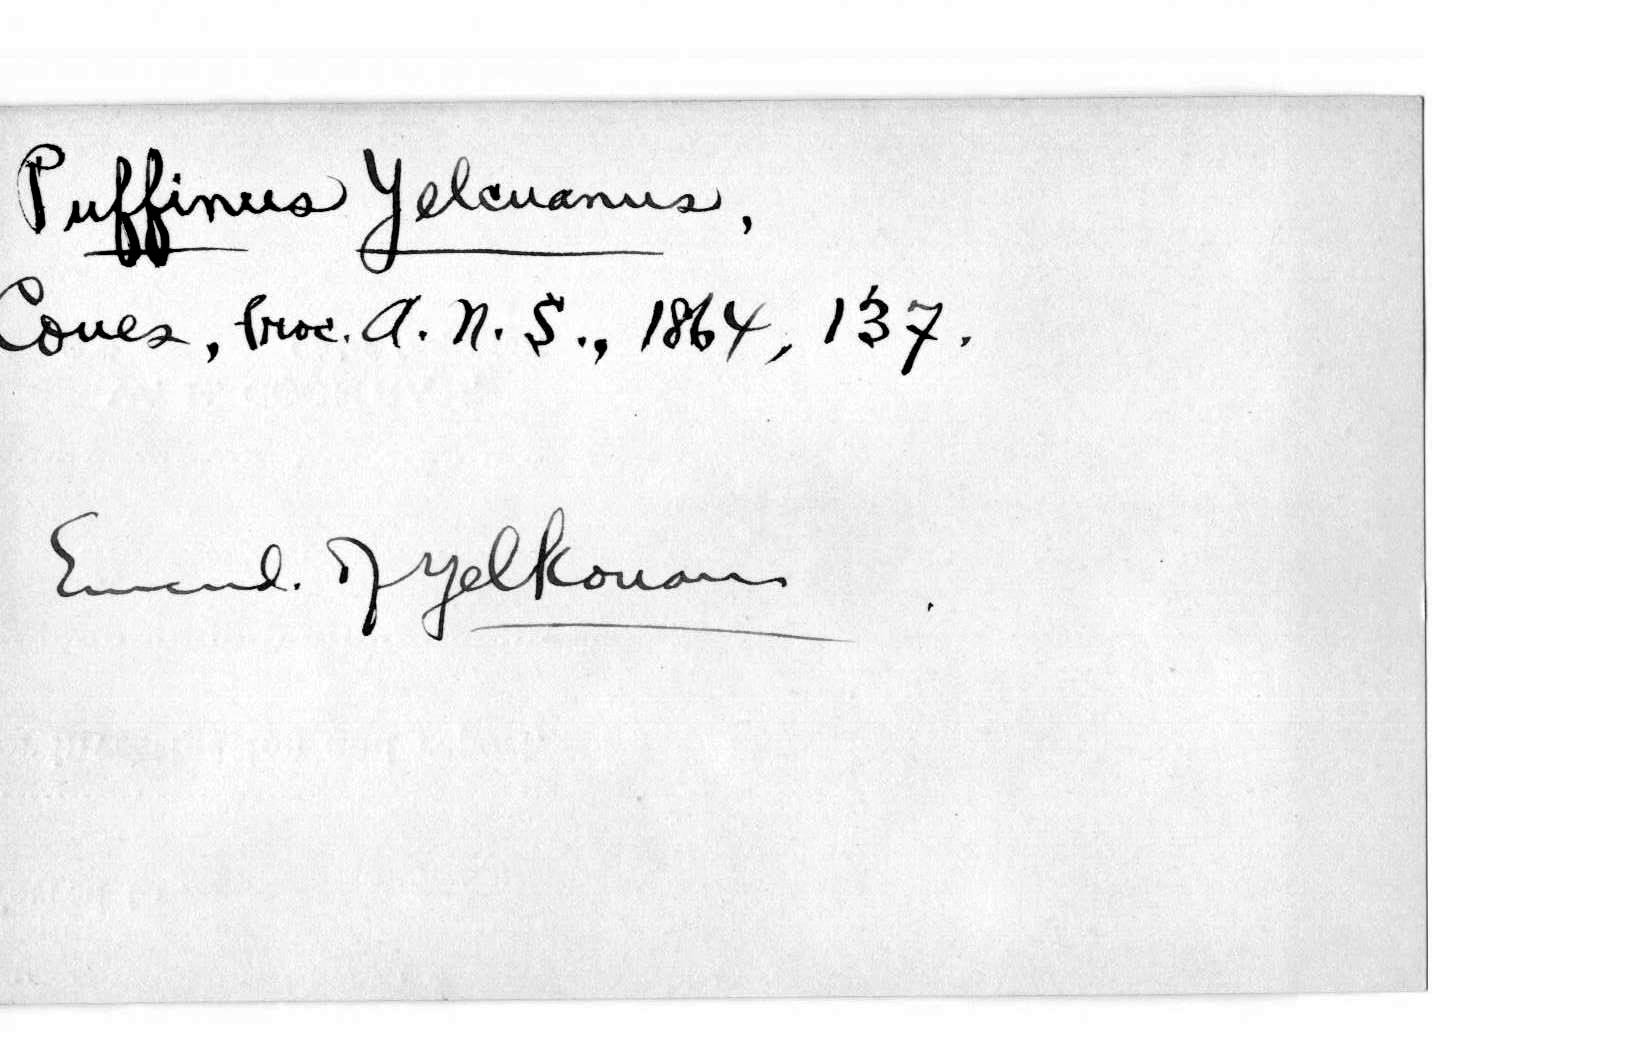 Puffinus Yelcuanus,
Coues, Proc. A. N. S., 1864, 137.
Emend. of yelkouan